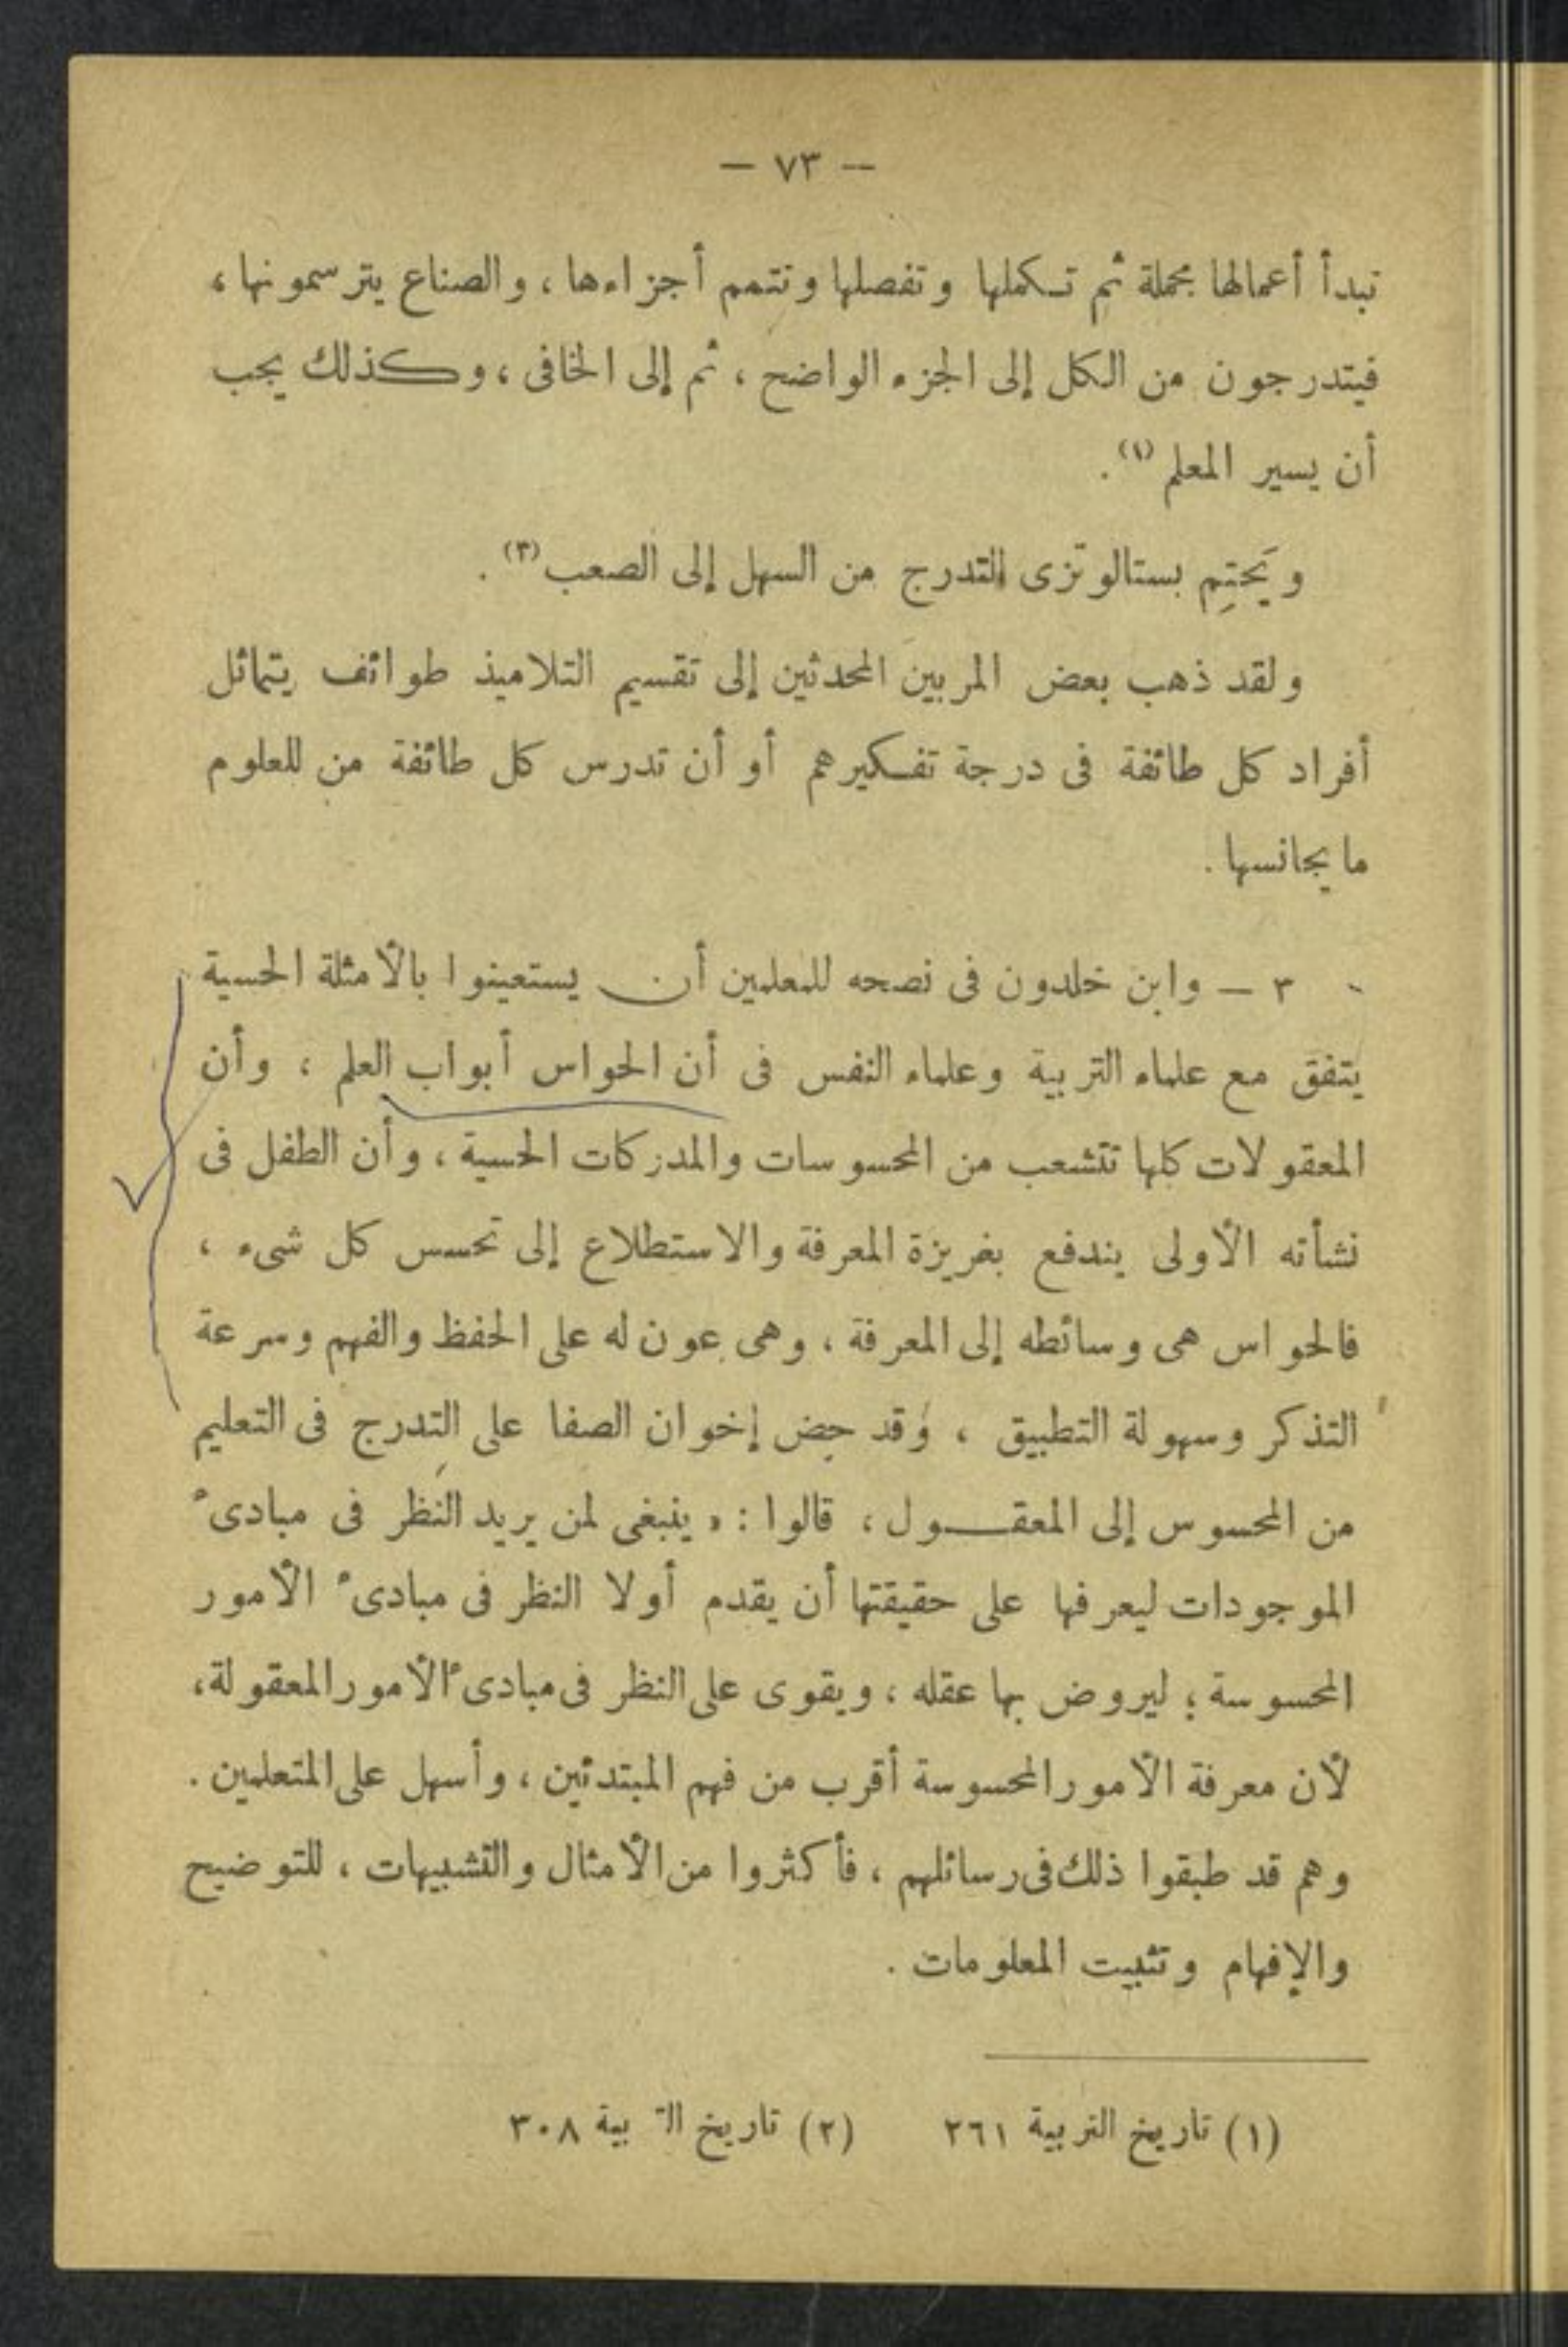 — ٧٣ —
تبدأ أعمالها مجملة ثم تكملها وتفصلها وتتمم أجزاءها ، والصناع يترسمونها ،
فيتدرجون من الكل إلى الجزء الواضح ، ثم إلى الخافى ، وكذلك يجب
أن يسير المعلم (١).
ويَحتِم بستالوتزى التدرج من السهل إلى الصعب (٣) .
ولقد ذهب بعض المربين المحدثين إلى تقسيم التلاميذ طوائف يتماثل
أفراد كل طائفة فى درجة تفكيرهم أو أن تدرس كل طائفة من العلوم
ما يجانسها .
٣ — وابن خلدون فى نصحه للمعلمين أن يستعينوا بالأمثلة الحسية
يتفق مع علماء التربية وعلماء النفس فى أن الحواس أبواب العلم ، وأن
المعقولات كلها تتشعب من المحسوسات والمدركات الحسية ، وأن الطفل فى
نشأته الأولى يندفع بغريزة المعرفة والاستطلاع إلى تحسس كل شىء ،
فالحواس هى وسائطه إلى المعرفة ، وهى عون له على الحفظ والفهم وسرعة
التذكر وسهولة التطبيق ، وقد حض إخوان الصفا على التدرج فى التعليم
من المحسوس إلى المعقول ، قالوا : « ينبغى لمن يريد النظر فى مبادىء
الموجودات ليعرفها على حقيقتها أن يقدم أولا النظر فى مبادىء الأمور
المحسوسة ؛ ليروض بها عقله ، ويقوى على النظر فى مبادىء الأمور المعقولة ،
لأن معرفة الأمور المحسوسة أقرب من فهم المبتدئين ، وأسهل على المتعلمين .
وهم قد طبقوا ذلك فى رسائلهم ، فأكثروا من الأمثال والتشبيهات ، للتوضيح
والإفهام وتثبيت المعلومات .
(١) تاريخ التربية ٢٦١ (٢) تاريخ التربية ٣٠٨